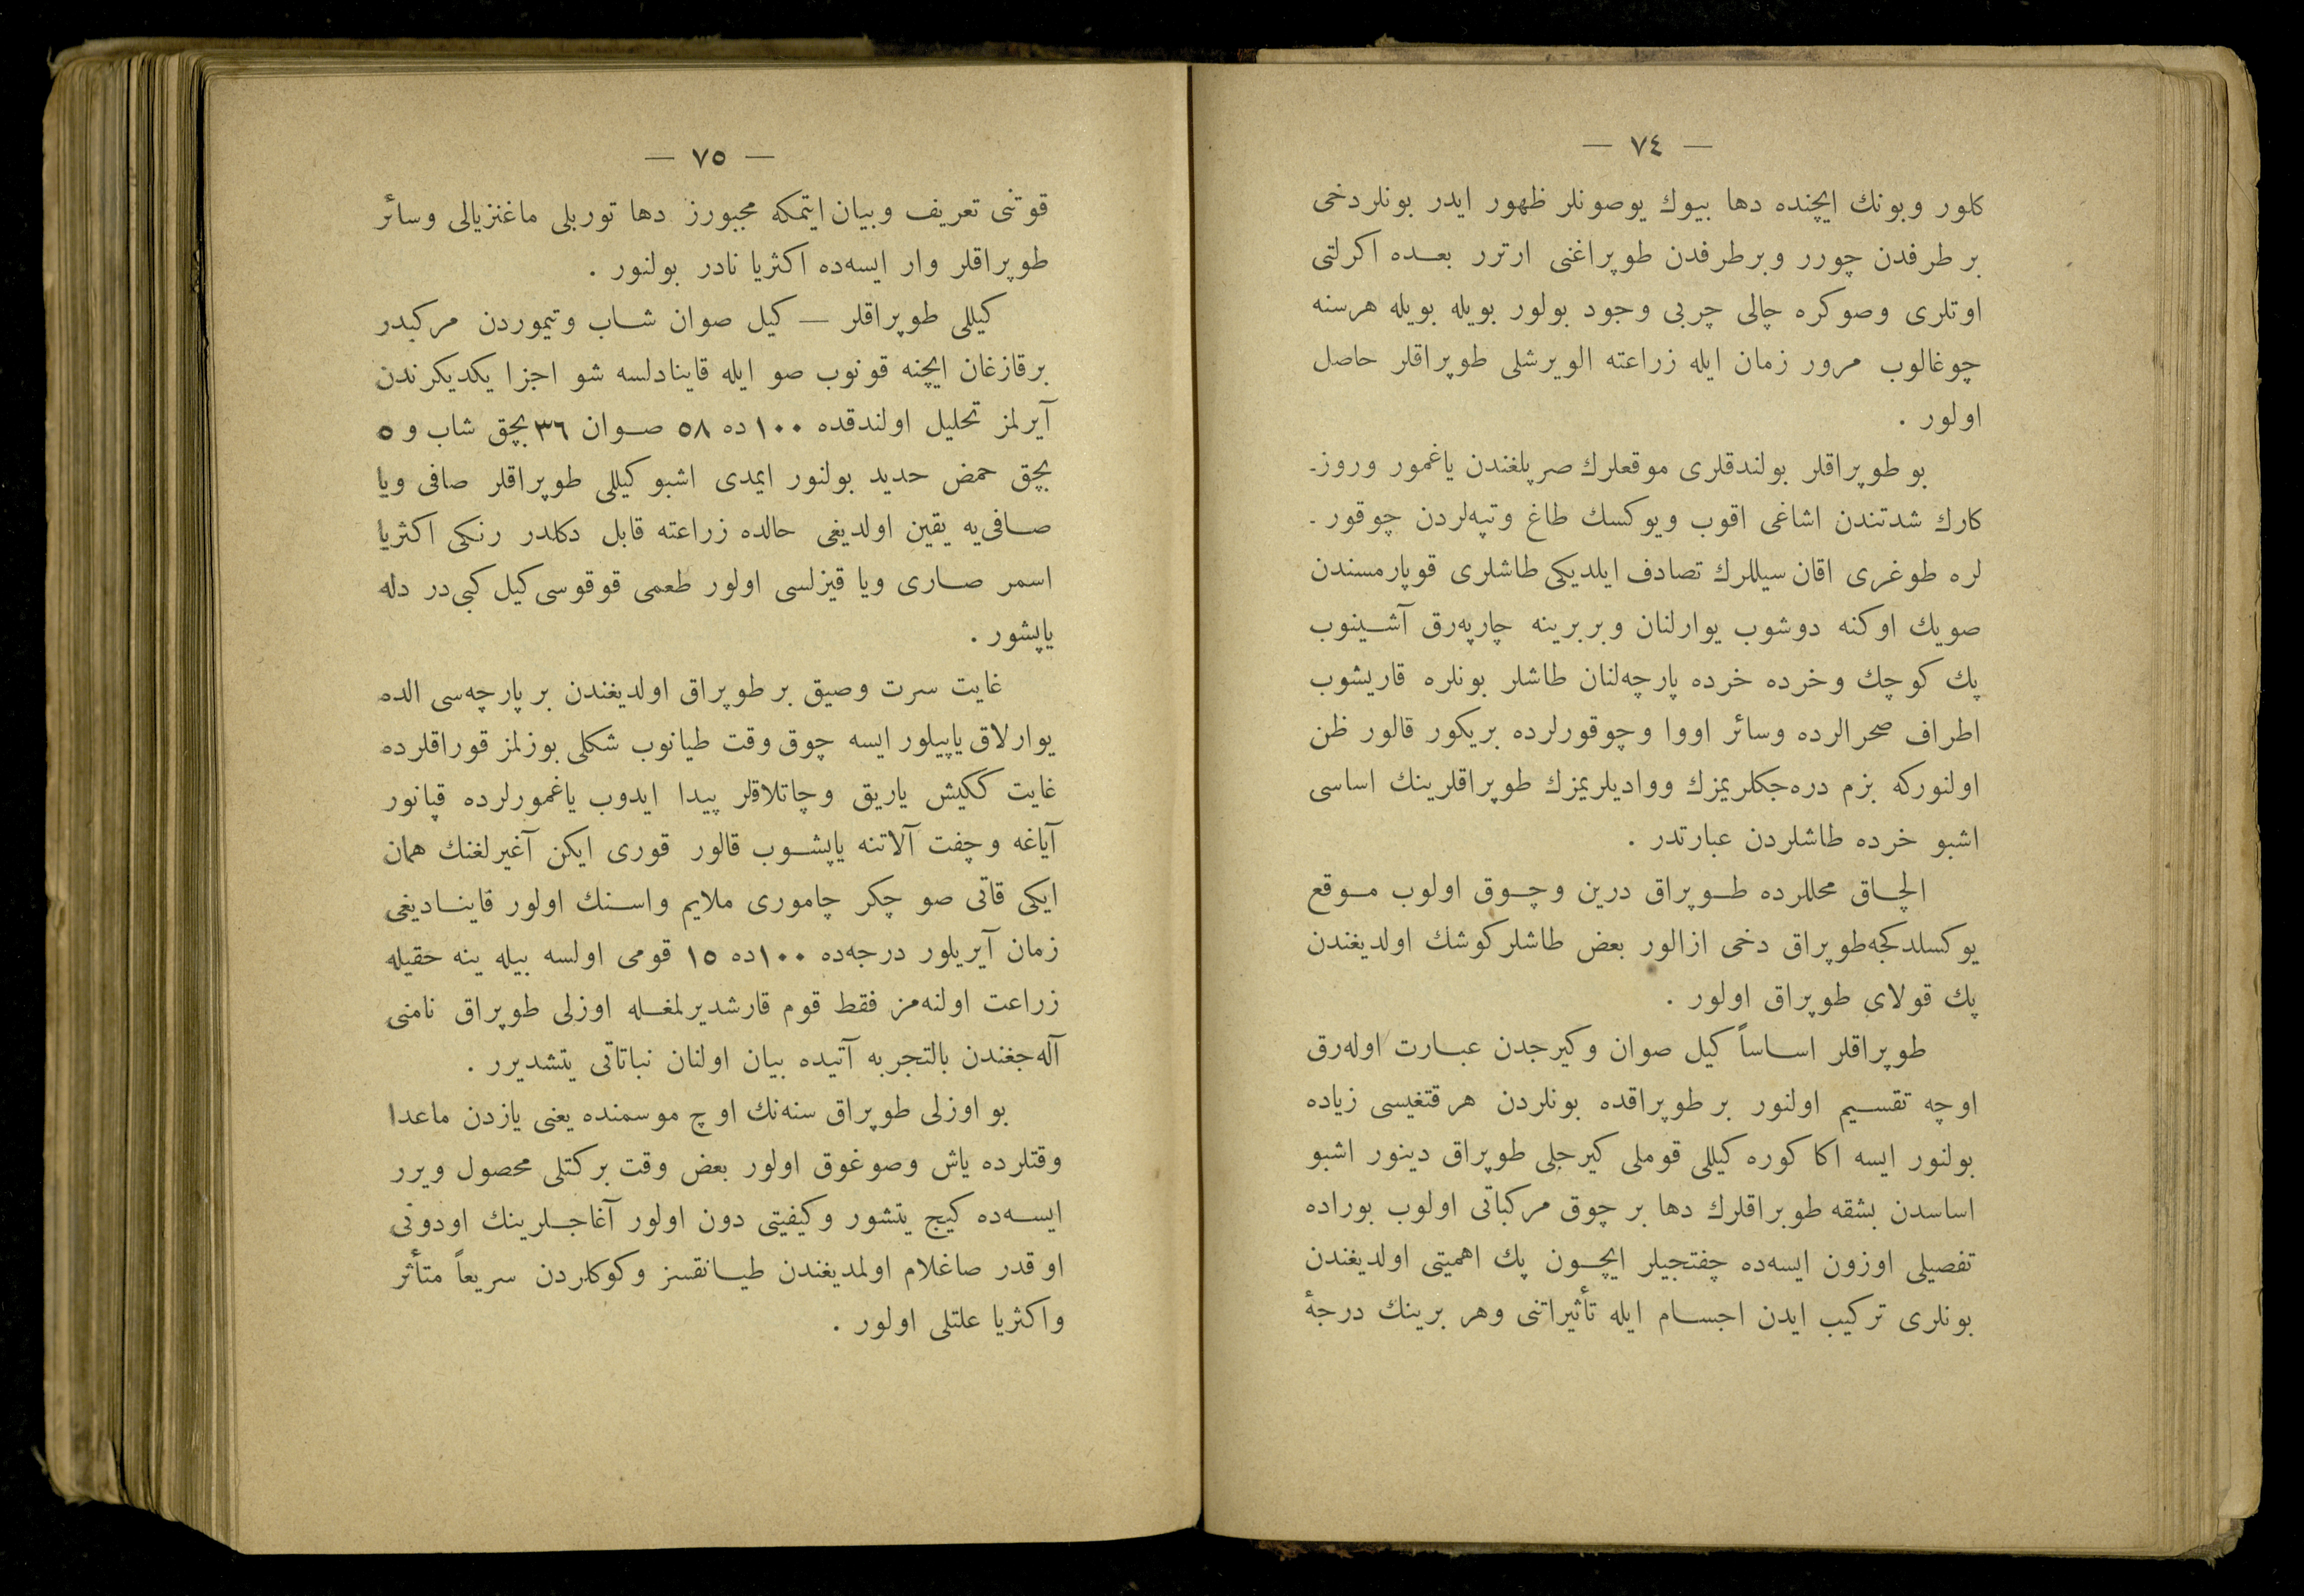 — ٧٤ —
كلور وبونك ايچنده دها بيوك يوصونلر ظهور ايدر بونلردخى
بر طرفدن چورر وبرطرفدن طوپراغنى ارترر بعــده اكرلتى
اوتلرى وصوكره چالى چربى وجود بولور بويله بويله هرسنه
چوغالوب مرور زمان ايله زراعته الويرشلى طوپراقلر حاصل
اولور .
بو طوپراقلر بولندقلرى موقعلرك صرپلغندن ياغمور وروز-
كارك شدتندن اشاغى اقوب ويوكسك طاغ وتپه‌لردن چوقور-
لره طوغرى اقان سيللرك تصادف ايلديكى طاشلرى قوپارمسندن
صويك اوكنه دوشوب يوارلنان وبربرينه چارپه‌رق آشــينوب
پك كوچك وخرده خرده پارچه‌لنان طاشلر بونلره قاريشوب
اطراف صحرالرده وسائر اووا وچوقورلرده بريكور قالور ظن
اولنوركه بزم دره‌جكلريمزك وواديلريمزك طوپراقلرينك اساسى
اشبو خرده طاشلردن عبارتدر .
الچــاق محللرده طــوپراق درين وچــوق اولوب مــوقع
يوكسلدكجه‌طوپراق دخى ازالور بعض طاشلركوشك اولديغندن
پك قولاى طوپراق اولور .
طوپراقلر اســاساً كيل صوان وكيرجدن عبــارت اوله‌رق
اوچه تقســيم اولنور بر طوپراقده بونلردن هرقتغيسى زياده
بولنور ايسه اكا كوره كيللى قوملى كيرجلى طوپراق دينور اشبو
اساسدن بشقه طوبراقلرك دها بر چوق مركباتى اولوب بوراده
تفصيلى اوزون ايسه‌ده چفتجيلر ايچــون پك اهميتى اولديغندن
بونلرى تركيب ايدن اجســام ايله تأثيراتنى وهر برينك درجۀ
— ٧٥ —
قوتنى تعريف وبيان ايتمكه مجبورز دها توربلى ماغنزيالى وسائر
طوپراقلر وار ايسه‌ده اكثريا نادر بولنور .
كيللى طوپراقلر — كيل صوان شــاب وتيموردن مركبدر
برقازغان ايچنه قونوب صو ايله قاينادلسه شو اجزا يكديكرندن
آيرلمز تحليل اولندقده ١٠٠ده ٥٨ صــوان ٣٦ بچق شاب و ٥
بچق حمض حديد بولنور ايمدى اشبو كيللى طوپراقلر صافى ويا
صــافى‌يه يقين اولديغى حالده زراعته قابل دكلدر رنكى اكثريا
اسمر صــارى ويا قيزلسى اولور طعمى قوقوسى كيل كبى‌در دله
ياپشور .
غايت سرت وصيق بر طوپراق اولديغندن بر پارچه‌سى الده
يوارلاق ياپيلور ايسه چوق وقت طيانوب شكلى بوزلمز قوراقلرده
غايت ككيش ياريق وچاتلاقلر پيدا ايدوب ياغمورلرده قپانور
آياغه وچفت آلاتنه ياپشــوب قالور قورى ايكن آغيرلغنك همان
ايكى قاتى صو چكر چامورى ملايم واســنك اولور قاينــاديغى
زمان آيريلور درجه‌ده ١٠٠ده ١٥ قومى اولسه بيله ينه حقيله
زراعت اولنه‌مز فقط قوم قارشديرلمغــله اوزلى طوپراق نامنى
آله‌جغندن بالتجربه آتيده بيان اولنان نباتاتى يتشديرر .
بو اوزلى طوپراق سنه‌نك اوچ موسمنده يعنى يازدن ماعدا
وقتلرده ياش وصوغوق اولور بعض وقت بركتلى محصول ويرر
ايســه‌ده كيج يتشور وكيفيتى دون اولور آغاجــلرينك اودونى
اوقدر صاغلام اولمديغندن طيــانقسز وكوكلردن سريعاً متأثر
واكثريا علتلى اولور .